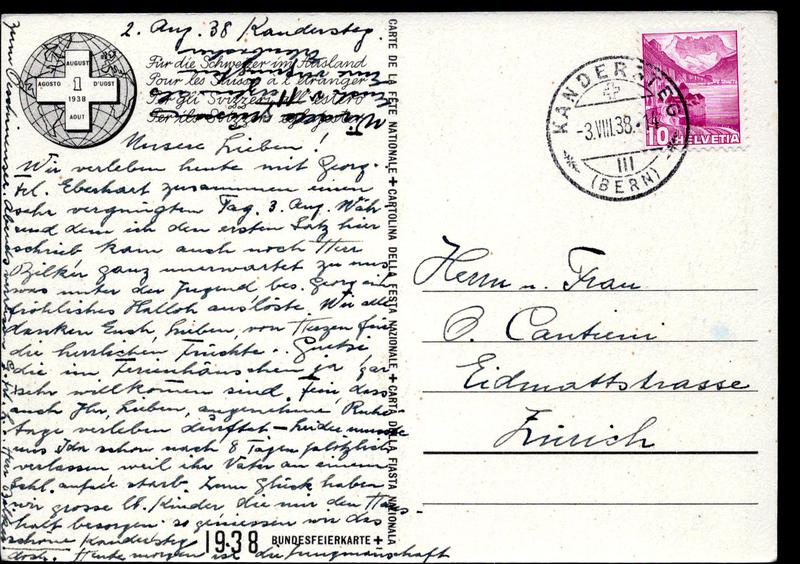 2. Aug. 38 Kandersteg.
AUGUST
AGOSTO 1 D'UOST
1938
AOUT
Für die Schweizer im Ausland
Pour les Suisses à l'étranger
Per gli Svizzeri all'estero
Unsere Lieben!
Wir verleben heute mit Georg
Frl. Eberhart zusammen einen
sehr vergnügten Tag. 3. Aug. Wäh-
rend dem ich den ersten Satz hier
schrieb kam auch noch Herr
ganz unerwartet zu uns
was unter der Jugend bes. Georg ein
fröhliches Halloh auslöste. Wir alle
danken Euch, Lieben, von Herzen für
die herrlichen Früchte.
die im Ferienhäuschen ja gar
sehr willkommen sind. Fein, dass
auch Ihr, Lieben, angenehme Ruhe-
tage verleben durftet - leider musste
uns Ida schon nach 8 Tagen plötzlich
verlassen weil ihr Vater an einem
Schl. starb. Zum Glück haben
wir grosse Kinder, die mir den Haus-
halt besorgen. so geniessen wir das
schöne Kandersteg
doch. Heute morgen ist die Jungmannschaft
zum Oeschinensee. Abends
CARTE DE LA FÊTE NATIONALE + CARTOLINA DELLA FESTA NAZIONALE + CARTA DELLA FIASTA NAZIONALA
1938 BUNDESFEIERKARTE +
KANDERSTEG
-3.VIII.38.-14
III
(BERN)
10 HELVETIA
Herrn u. Frau
O. Cantieni
Eidmattstrasse
Zürich